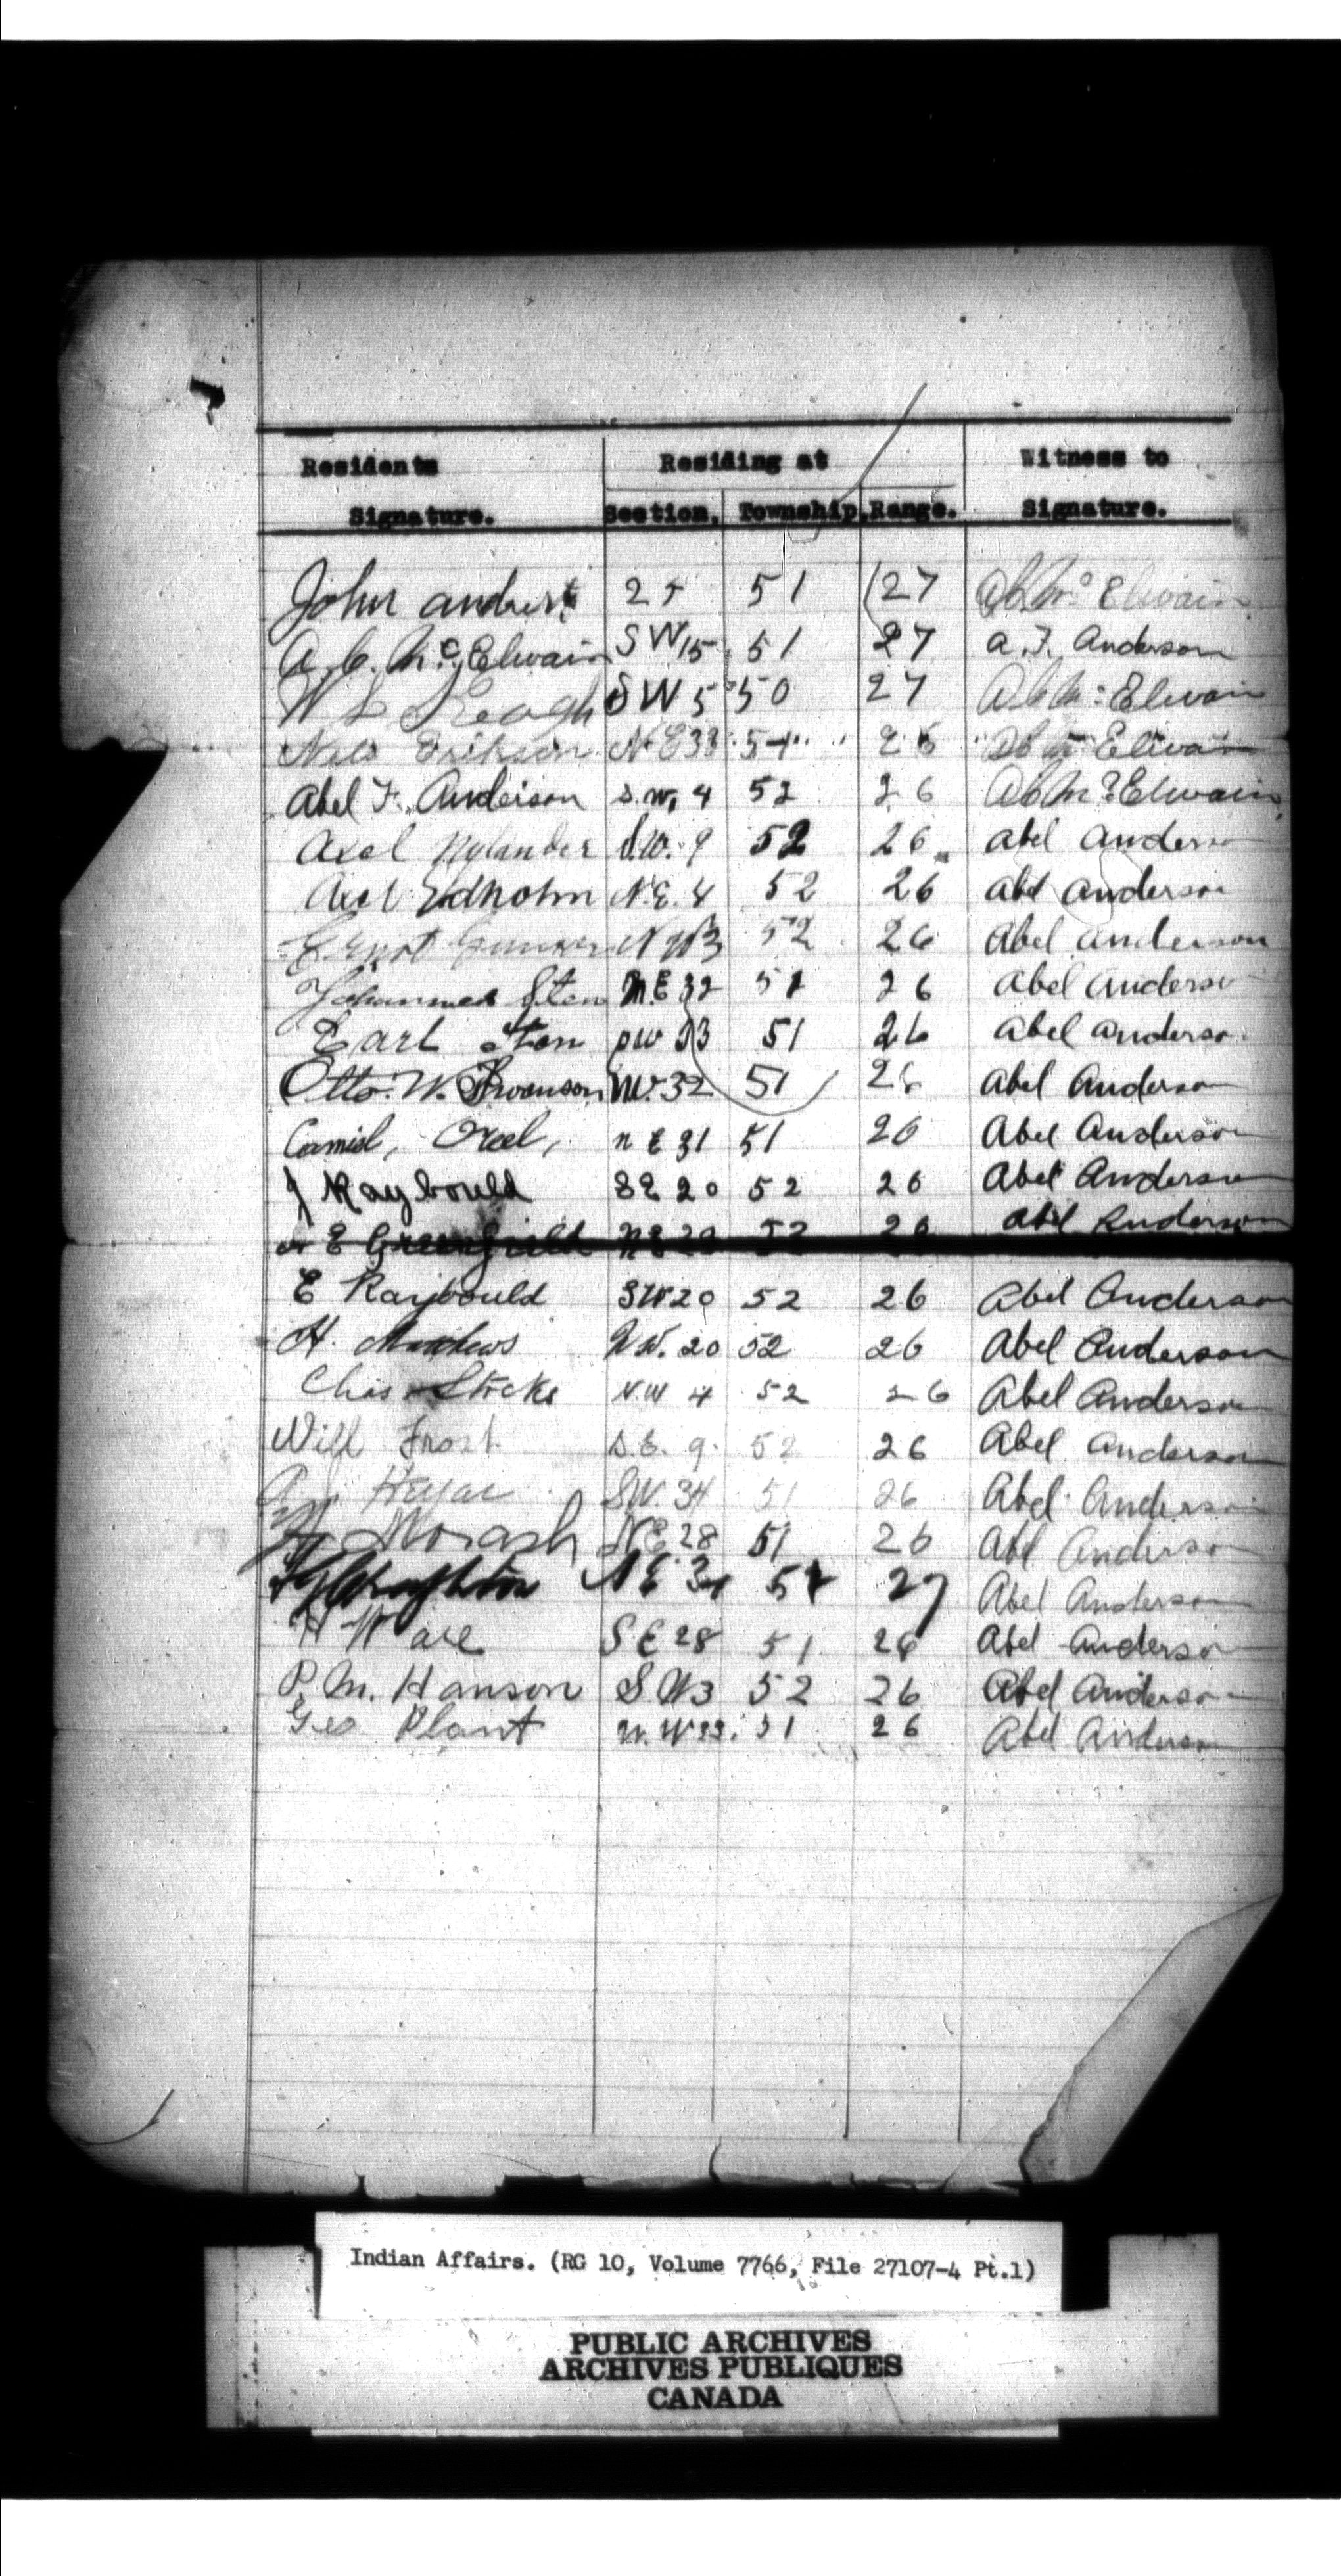 Residents Residing at Witness to
Signature. Section. Township. Range. Signature.
John 25 51 27 Ab Mc Elwain
A. b. Mc Elwain SW 15 51 27 A. F. Anderson
W Keogh SW 5 50 27 Ab Mc Elwain
Nels Erikson N.E 33 51 26 Ab Mc Elwain
Abel F. Anderson S.W. 4 52 26 Ab Mc Elwain
Axel Nylander S.W. 9 52 26 Abel Anderson
Axel Edholm N.E. 4 52 26 Abel Anderson
Ernst NW 3 52 26 Abel Anderson
Johannes Sten N.E 32 51 26 Abel Anderson
Earl Sten SW 33 51 26 Abel Anderson
Otto. W. Swanson NW. 32 51 26 Abel Anderson
Camiel, Orel, n E 31 51 26 Abel Anderson
J Raybould SE 20 52 26 Abel Anderson
E Greenfield NE 20 52 26 Abel Anderson
E Raybould SW 20 52 26 Abel Anderson
H. Mathews N.W. 20 52 26 Abel Anderson
Chas Stocks N.W 4 52 26 Abel Anderson
Will Frost S.E. 9. 52 26 Abel Anderson
A SW. 34 51 26 Abel Anderson
Morash N.E. 28 51 26 Abel Anderson
NE 34 51 27 Abel Anderson
H Ware SE 28 51 26 Abel Anderson
P. M. Hanson SW 3 52 26 Abel Anderson
Geo Plant N.W 33. 51 26 Abel Anderson
Indian Affairs. (RG 10, Volume 7766, File 27107-4 Pt.1)
PUBLIC ARCHIVES
ARCHIVES PUBLIQUES
CANADA